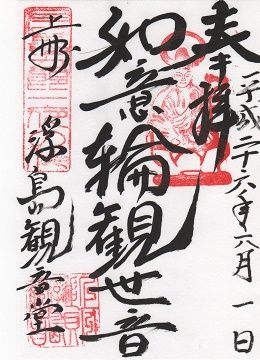 奉拝
平成二十六年六月一日
如意輪観世音
上州
浮島観音堂